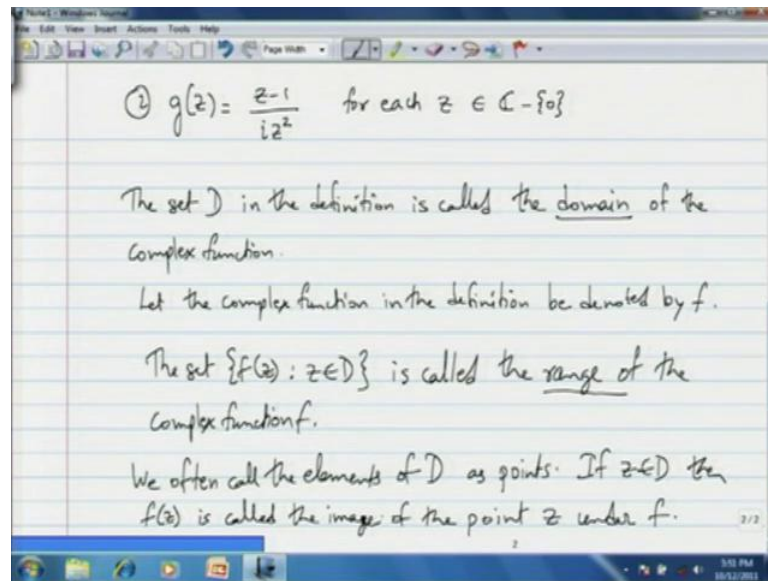 Note1 - Windows Journal
File Edit View Insert Actions Tools Help
Page Width
② g(z) = z-1 / iz² for each z ∈ ℂ - {0}
The set D in the definition is called the domain of the
complex function.
Let the complex function in the definition be denoted by f.
The set {f(z) : z∈D} is called the range of the
complex function f.
We often call the elements of D as points. If z∈D then
f(z) is called the image of the point z under f.
2/2
2
5:51 PM
10/12/2011